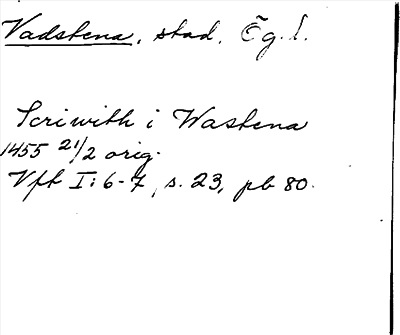 Vadstena, stad, Ög. l.
Scriwith i Wastena
1455 21/2 orig.
Vft I: 6-7, s. 23, pb 80.